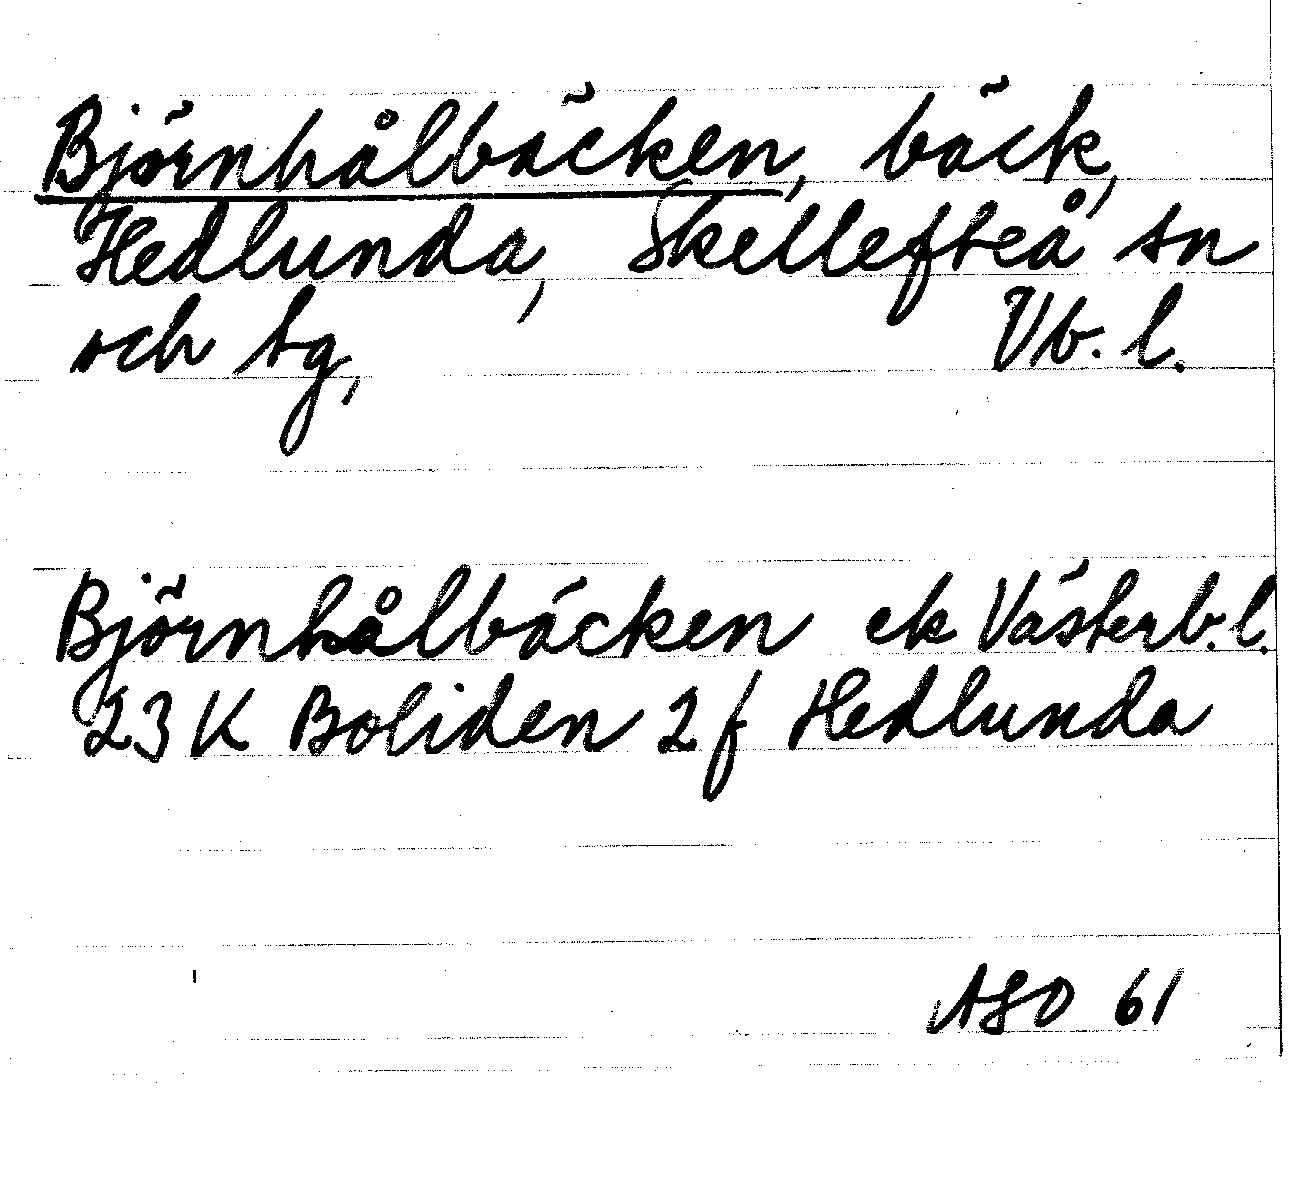 Björnhålbäcken, bäck,
Hedlunda, Skellefteå sn
och tg, Vb. l.
Björnhålbäcken ek Västerb. l.
23 K Boliden 2 f Hedlunda
ASO 61